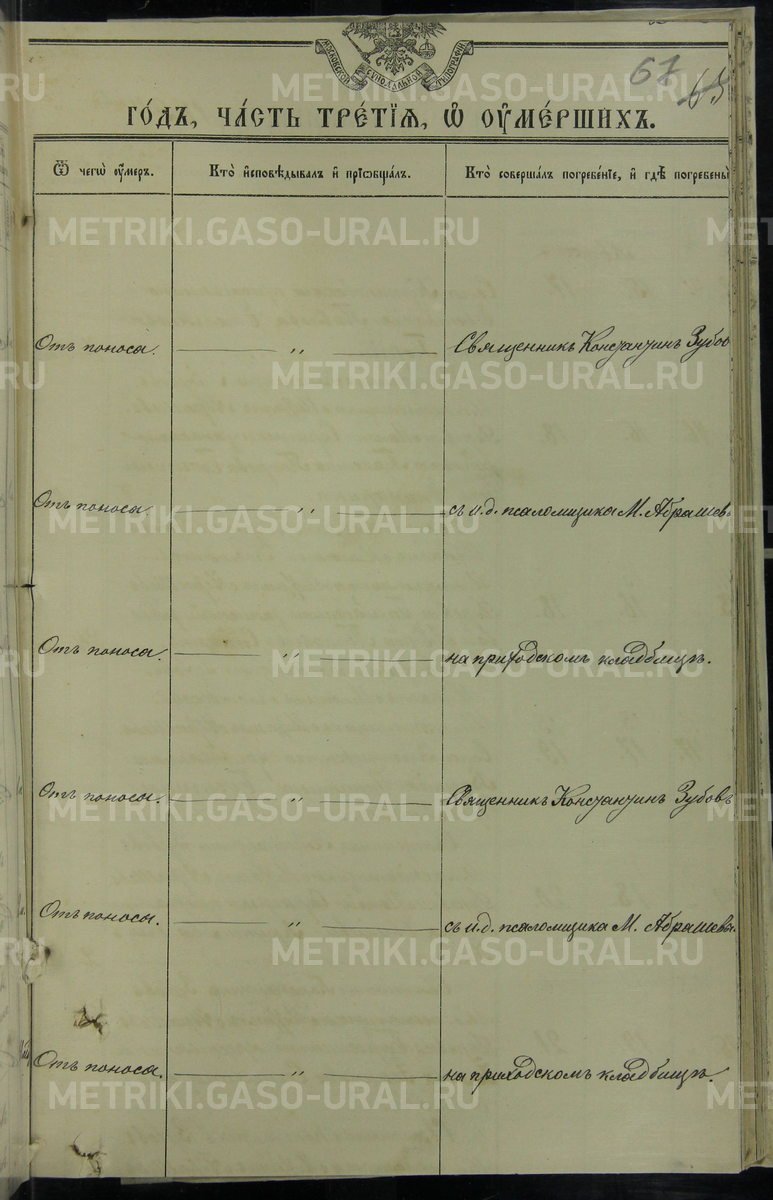 МОСКОВСКОЙ СѴНОДАЛЬНОЙ ТѴПОГРАФІИ
67
65
ГО́ДЪ, ЧА́СТЬ ТРЕ́ТІѦ, Ѡ҆ ОУ҆МЕ́РШИХЪ.
Ѿ чегѡ̀ оу҆́меръ.
Кто̀ и҆сповѣ́дывалъ и҆ прїѻбща́лъ.
Кто̀ соверша́лъ погребе́нїе, и҆ гдѣ̀ погребены̀
Отъ поноса. — „ — Священникъ Константинъ Зубов
Отъ поноса. — „ — съ и.д. псаломщика М. Абрашев
Отъ поноса. — „ — на приходскомъ кладбищѣ.
Отъ поноса. — „ — Священникъ Константинъ Зубовъ
Отъ поноса. — „ — съ и.д. псаломщика М. Абрашевы.
Отъ поноса. — „ — на приходскомъ кладбищѣ.
METRIKI.GASO-URAL.RU